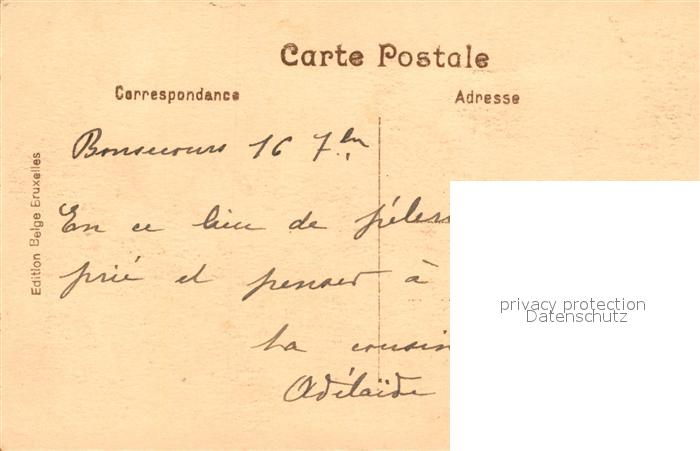 Carte Postale
Correspondance
Adresse
Edition Belge Bruxelles
Bonsecours 16 7bre
En ce lieu de
prié et penser à
la
Adélaïde
privacy protection
Datenschutz